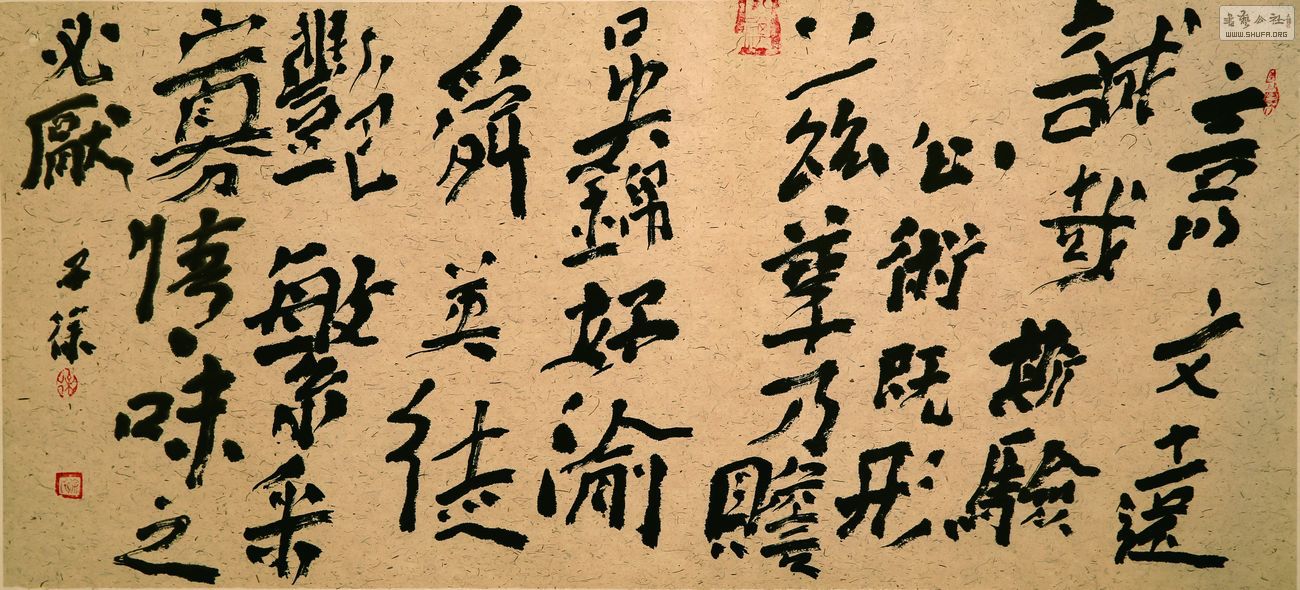 言以文遠
誠哉斯驗
心術既形
英華乃贍
吳錦好渝
舜英徒
豔繁采
寡情味之
必厭
書藝公社
WWW.SHUFA.ORG